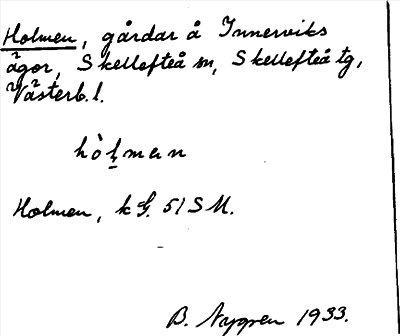 Holmen, gårdar å Innerviks
ägor, Skellefteå sn, Skellefteå tg,
Västerb. l.
hòl̠man
Holmen, kG. 51 SM.
B. Nygren 1933.